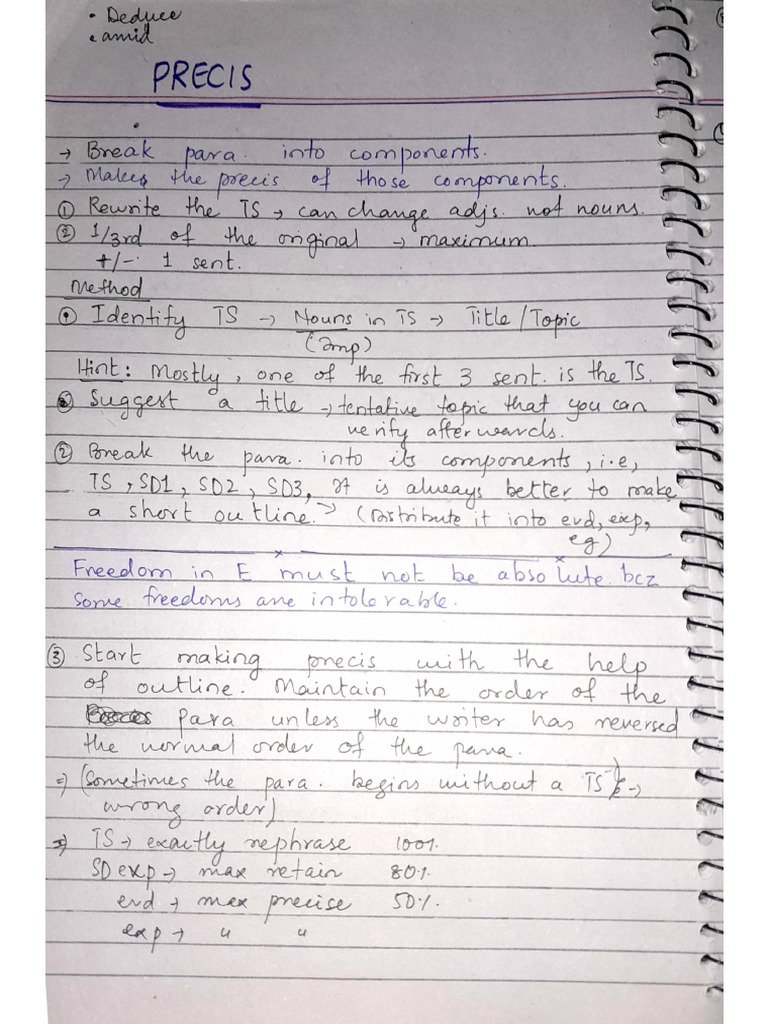 • Deduce
• amid
PRECIS
→ Break para. into components.
→ Makes the precis of those components.
① Rewrite the TS → can change adjs. not nouns.
② 1/3rd of the original → maximum.
+/- 1 sent.
Method
① Identify TS → Nouns in TS → Title/Topic
(Imp)
Hint: Mostly, one of the first 3 sent. is the TS.
Suggest a title → tentative topic that you can
verify afterwards.
② Break the para. into its components, i.e,
TS, SD1, SD2, SD3, It is always better to make
a short outline. → (Distribute it into evd, exp,
eg)
Freedom in E must not be absolute. bcz
some freedoms are intolerable.
③ Start making precis with the help
of outline. Maintain the order of the
Para unless the writer has reversed
the normal order of the para.
⇒ (Sometimes the para. begins without a TS →
wrong order)
⇒ TS → exactly rephrase 100%
SD exp → max retain 80%
evd → max precise 50%
exp → " "